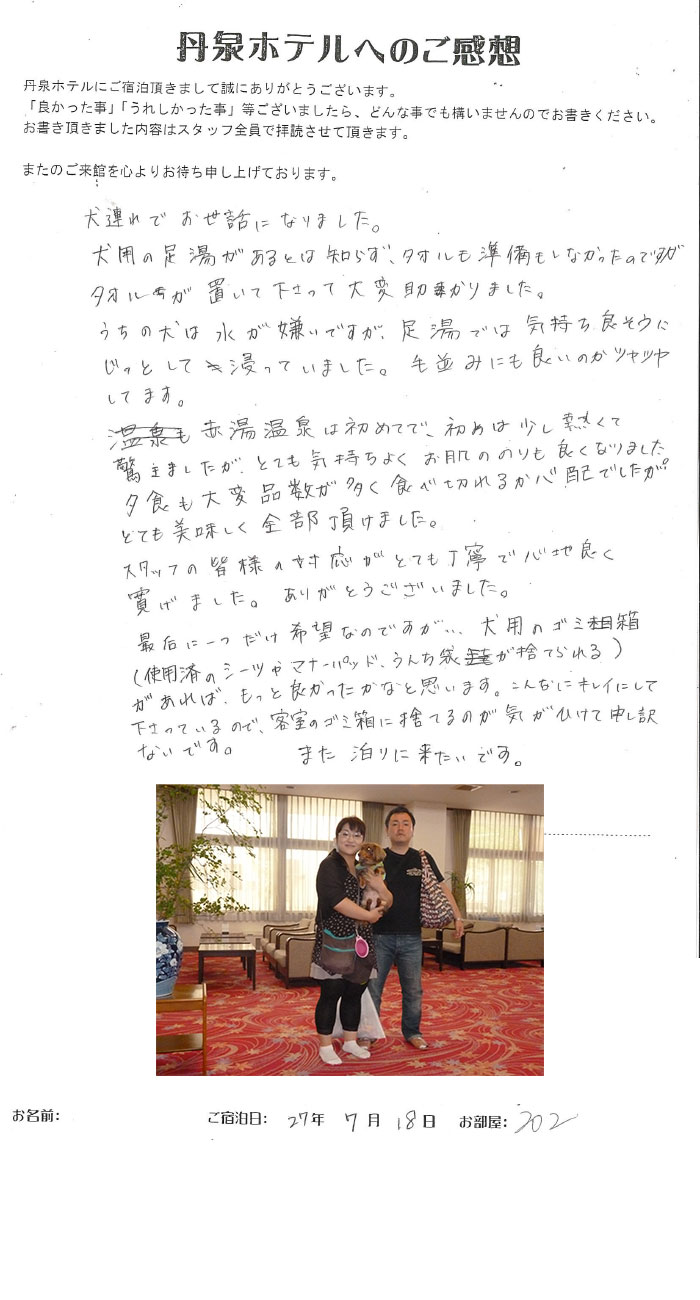 丹泉ホテルへのご感想
丹泉ホテルにご宿泊頂きまして誠にありがとうございます。
「良かった事」「うれしかった事」等ございましたら、どんな事でも構いませんのでお書きください。
お書き頂きました内容はスタッフ全員で拝読させて頂きます。
またのご来館を心よりお待ち申し上げております。
犬連れでお世話になりました。
犬用の足湯があるとは知らず、タオルも準備もしなかったのですが
タオルが置いて下さって大変助かりました。
うちの犬は水が嫌いですが、足湯では気持ち良そうに
じっとして浸っていました。毛並みにも良いのかツヤツヤ
してます。
赤湯温泉は初めてで、初めは少し熱くて
驚きましたが、とても気持ちよくお肌ののりも良くなりました
夕食も大変品数が多く食べ切れるか心配でしたが
とても美味しく全部頂けました。
スタッフの皆様の対応がとても丁寧で心地良く
寛げました。ありがとうございました。
最后に一つだけ希望なのですが… 犬用のゴミ箱
(使用済のシーツやマナーパッド、うんち袋が捨てられる)
があれば、もっと良かったかなと思います。こんなにキレイにして
下さっているので、客室のゴミ箱に捨てるのが気がひけて申し訳
ないです。 また泊りに来たいです。
お名前: ご宿泊日: 27年 7月 18日 お部屋: 202